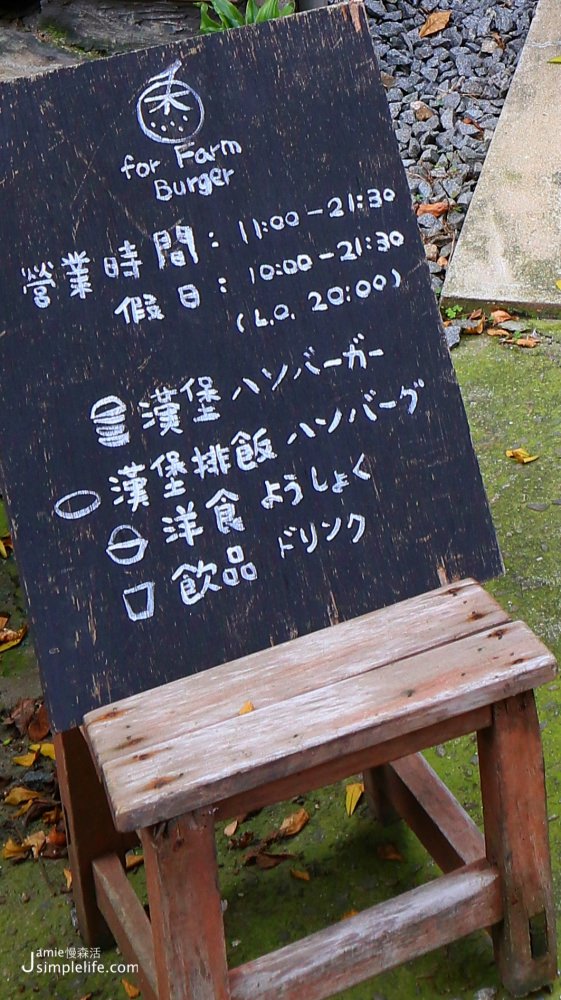 for Farm
Burger
營業時間：11:00-21:30
假日：10:00-21:30
(L.O. 20:00)
漢堡 ハンバーガー
漢堡排飯 ハンバーグ
洋食 ようしょく
飲品 ドリンク
Jamie慢森活
Jsimplelife.com